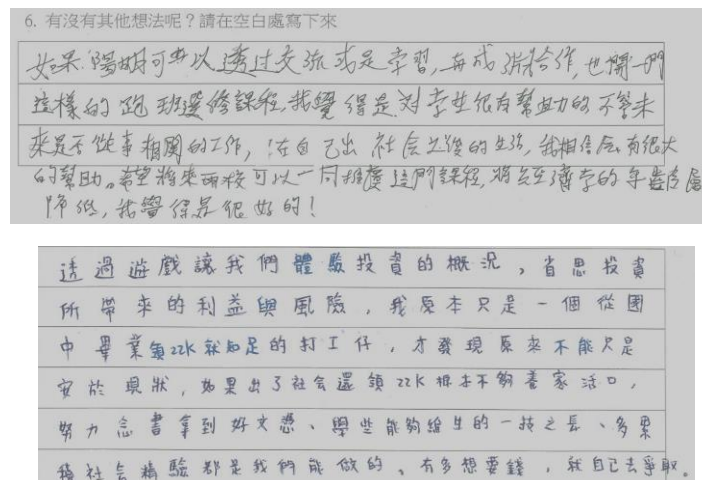 6. 有沒有其他想法呢？請在空白處寫下來
如果陽明可以透过交流或是学習,與成淵合作,也開一門
這樣的跑班選修課程,我覺得是对学生很有幫助的不管未
來是否從事相関的工作,在自己出社会之後的生活,我相信会有很大
的幫助。希望將來兩校可以一同推廣這門課程,將
降低,我覺得是很好的!
透過遊戲讓我們體驗投資的概況，省思投資
所帶來的利益與風險，我原本只是一個從國
中畢業領22K就知足的打工仔，才發現原來不能只是
安於現狀，如果出了社会還領22K根本不夠養家活口，
努力念書拿到好文憑、學些能夠維生的一技之長、多累
積社会經驗都是我們能做的。有多想要錢，就自己去爭取。